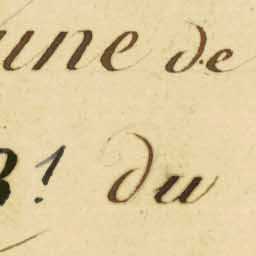 une de
B! du